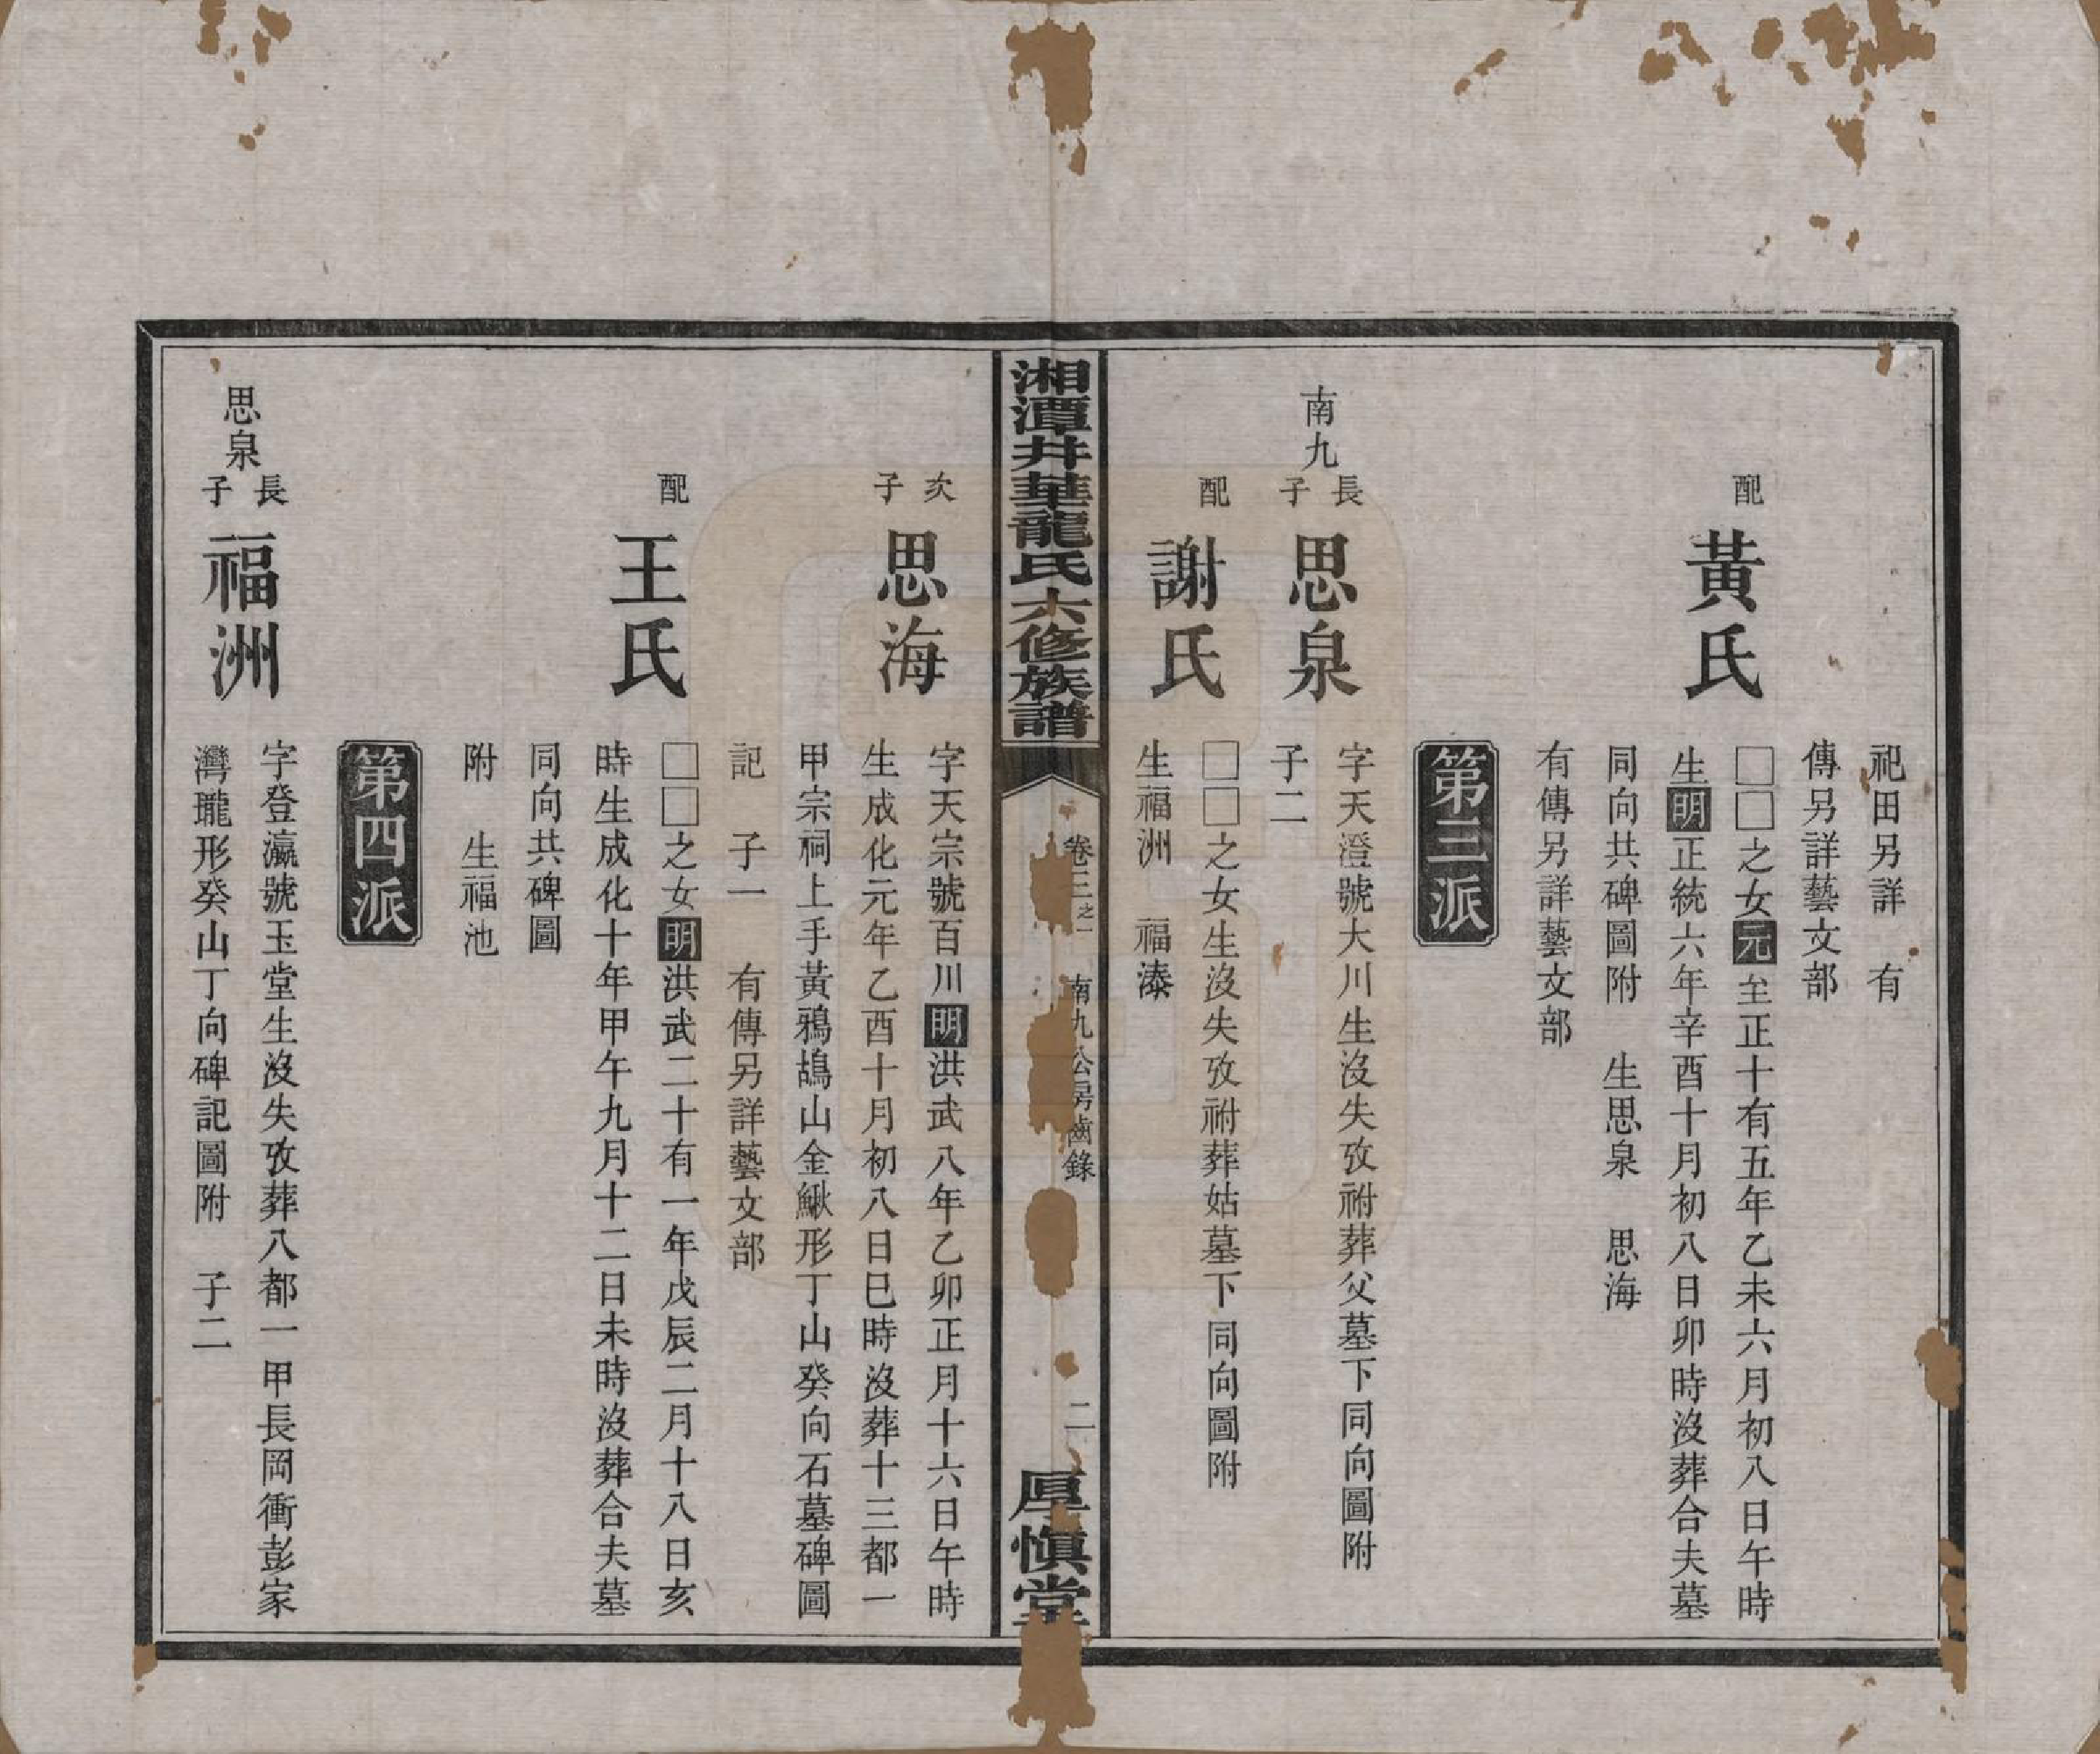 祀田另詳　有
傳另詳藝文部
配
黃氏
□□之女元至正十有五年乙未六月初八日午時
生明正統六年辛酉十月初八日卯時沒葬合夫墓
同向共碑圖附　生思泉　思海
有傳另詳藝文部
第三派
南九
長子
思泉
字天澄號大川生沒失攷祔葬父墓下同向圖附
子二
配
謝氏
□□之女生沒失攷祔葬姑墓下同向圖附
生福洲　福溙
湘潭井華龍氏六修族譜
卷三之一　南九公房齒錄
二
厚愼堂
次子
思海
字天宗號百川明洪武八年乙卯正月十六日午時
生成化元年乙酉十月初八日巳時沒葬十三都一
甲宗祠上手黃鴉鴣山金鰍形丁山癸向石墓碑圖
記　子一　有傳另詳藝文部
配
王氏
□□之女明洪武二十有一年戊辰二月十八日亥
時生成化十年甲午九月十二日未時沒葬合夫墓
同向共碑圖
附　生福池
第四派
思泉
長子
福洲
字登瀛號玉堂生沒失攷葬八都一甲長岡衝彭家
灣瓏形癸山丁向碑記圖附　子二